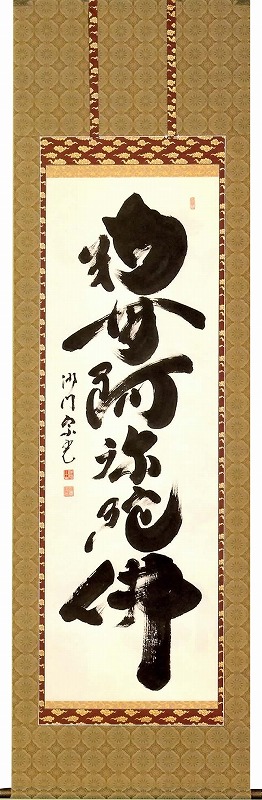 南無阿弥陀佛
沙門